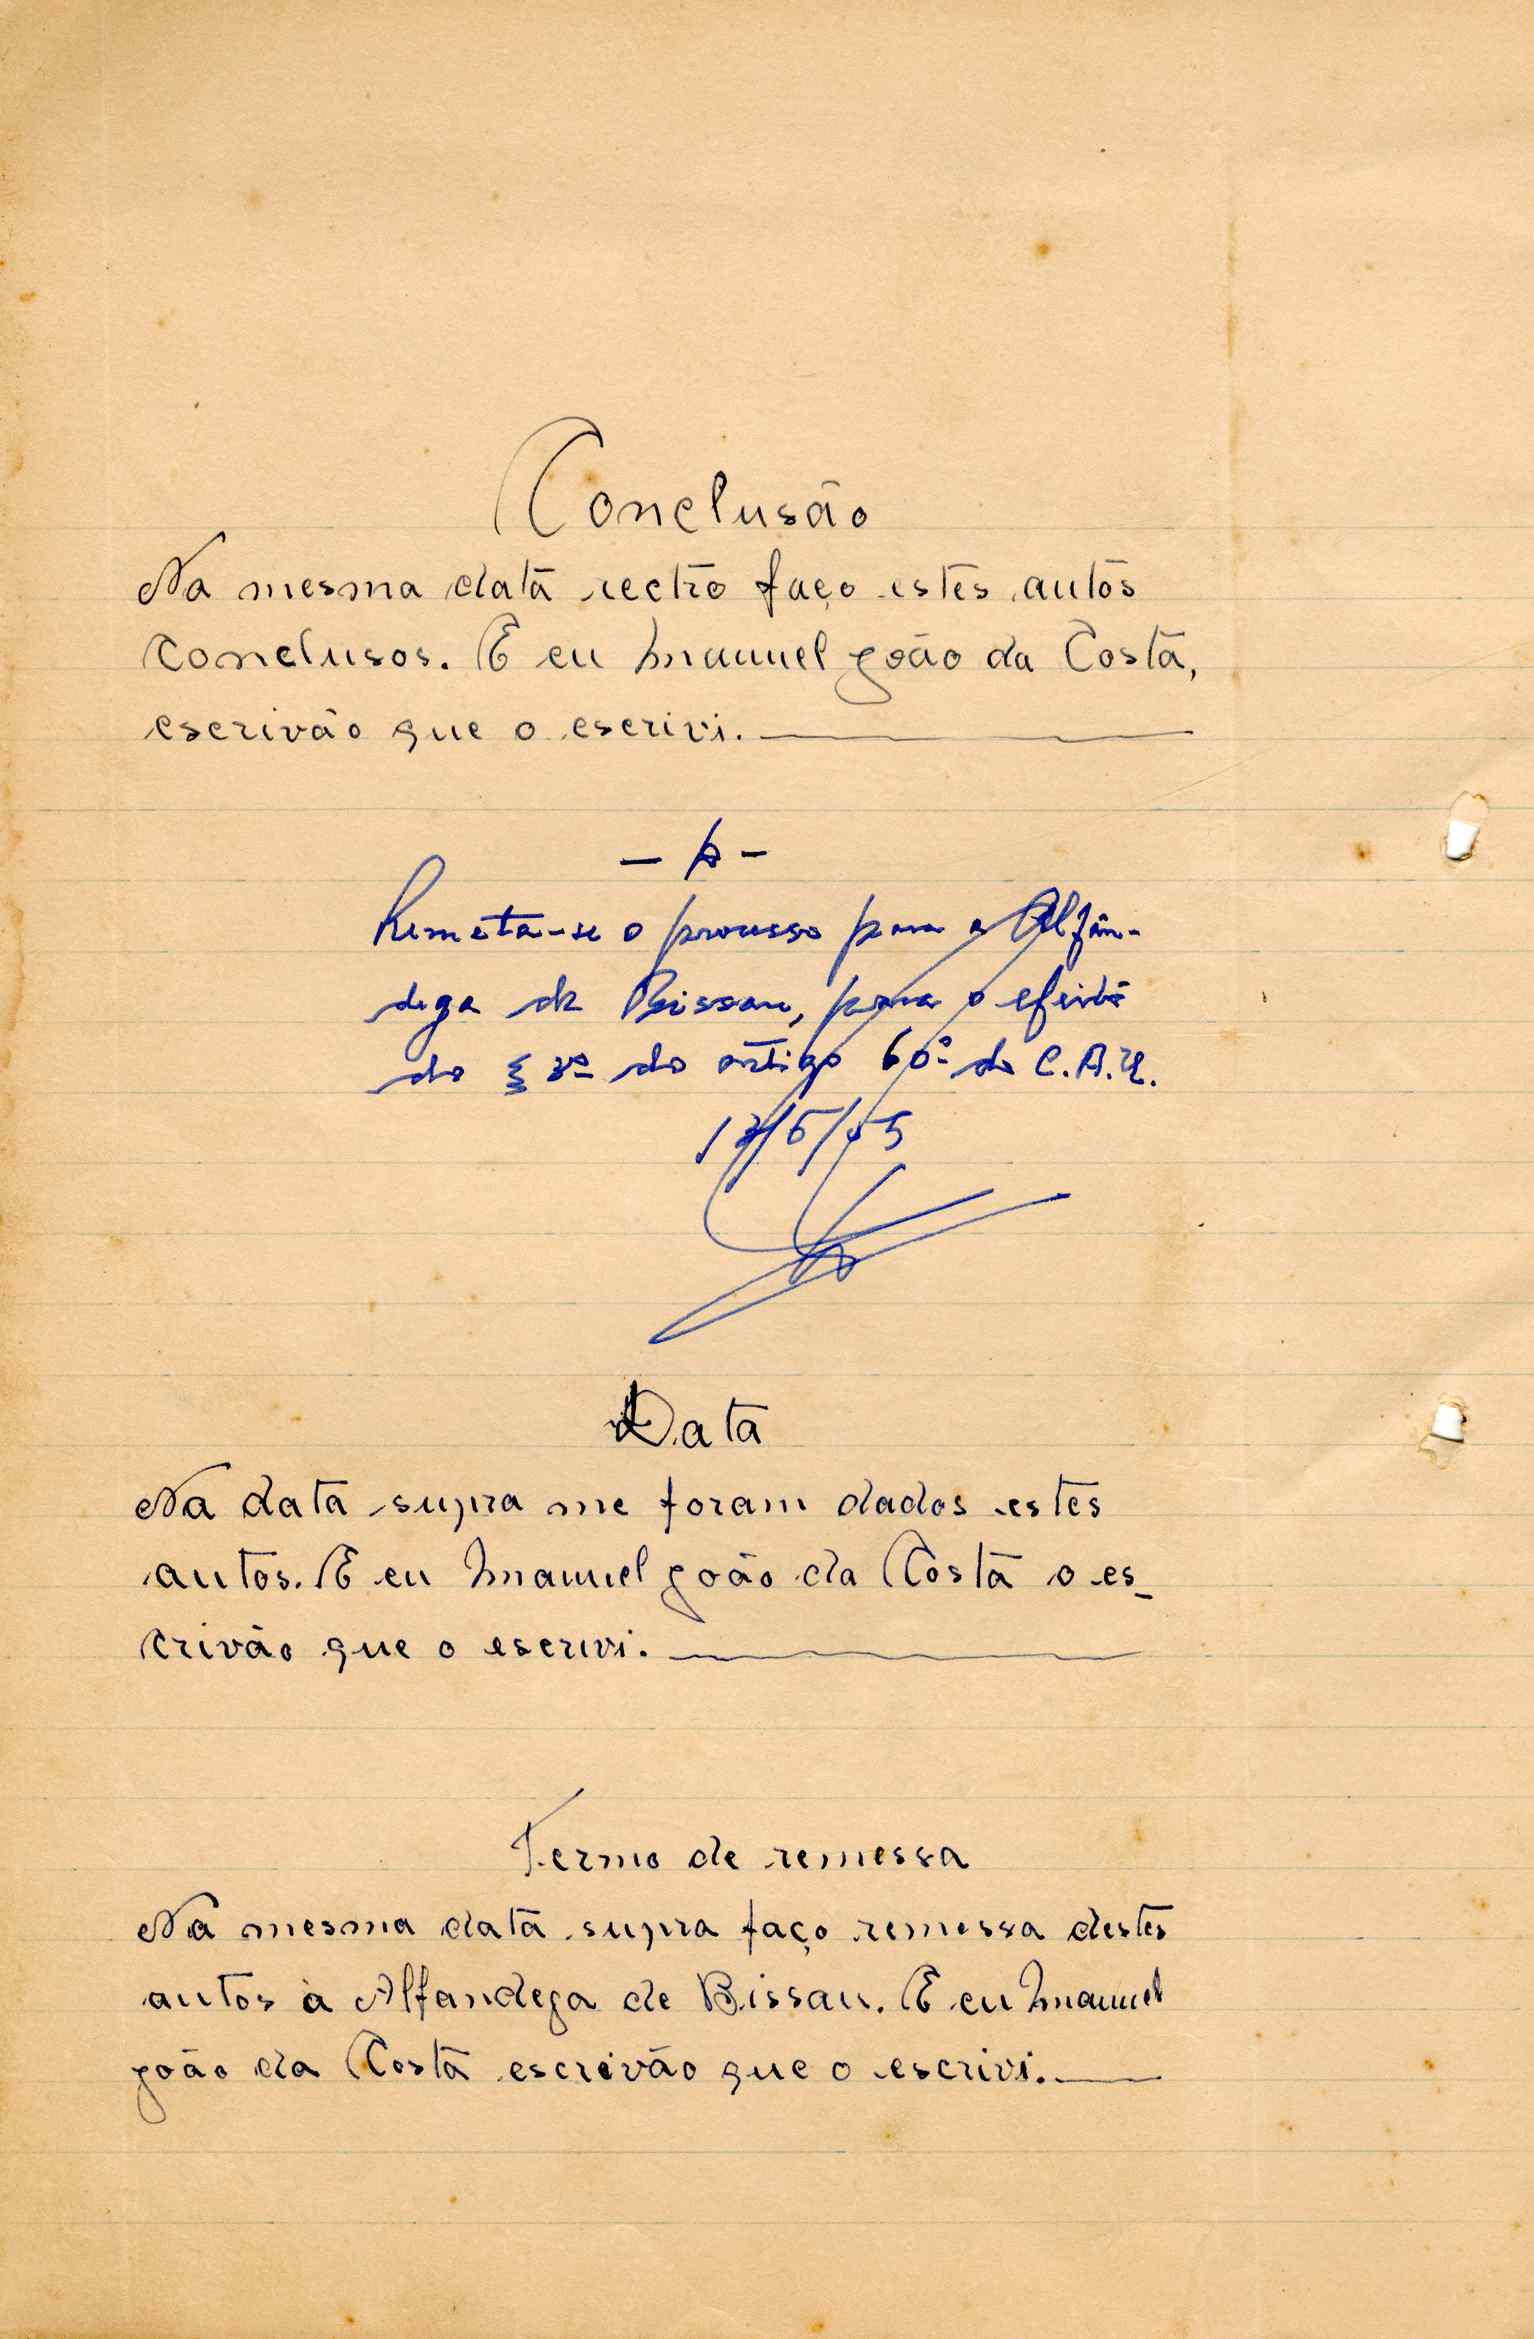 Conclusão
Na mesma data rectro faço estes autos
conclusos. E eu Manuel João da Costa,
escrivão que o escrivi.
Remeta-se o processo para a Alfân-
dega de Bissau, para o efeito
do § 3º do artigo 60º do C.A.U.
Data
Na data supra me foram dados estes
autos. E eu Manuel João da Costa o es-
crivão que o escrivi.
Termo de remessa
Na mesma data supra faço remessa destes
autos à Alfandega de Bissau. E eu Manuel
João da Costa escrivão que o escrivi.